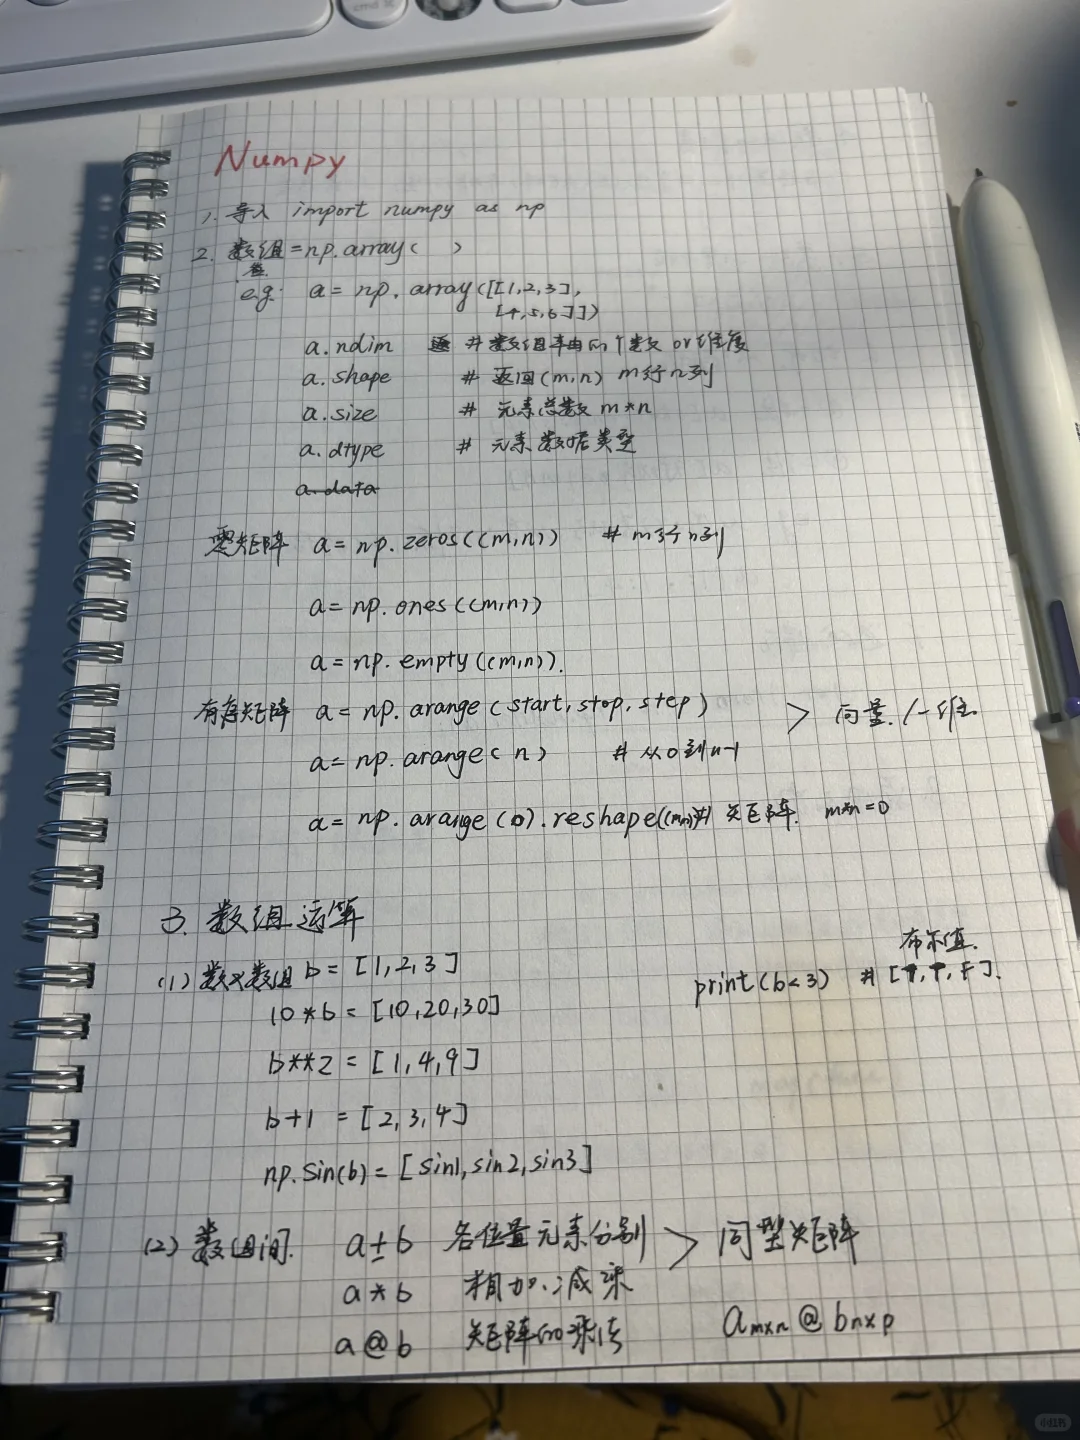 Numpy
1. 导入 import numpy as np
2. 数组 = np.array( )
e.g. a = np.array([[1,2,3],
[4,5,6]])
a.ndim # 数组轴的个数 or 维度
a.shape # 返回(m,n) m行n列
a.size # 元素总数 m*n
a.dtype # 元素数据类型
a.data
零矩阵 a = np.zeros((m,n)) # m行n列
a = np.ones((m,n))
a = np.empty((m,n)).
有序矩阵 a = np.arange(start, stop, step) > 向量. /一维.
a = np.arange(n) # 从0到n-1
a = np.arange(o).reshape((m,n)) # 矩阵. m*n=o
3. 数组运算
布尔值.
(1) 数x数组 b = [1,2,3] print(b<3) # [T,T,F].
10*b = [10,20,30]
b**2 = [1,4,9]
b+1 = [2,3,4]
np.sin(b) = [sin1, sin2, sin3]
(2) 数组间. a±b 各位置元素分别 > 同型矩阵
a*b 相加.减乘
a@b 矩阵的乘法 am×n @ bn×p
小红书